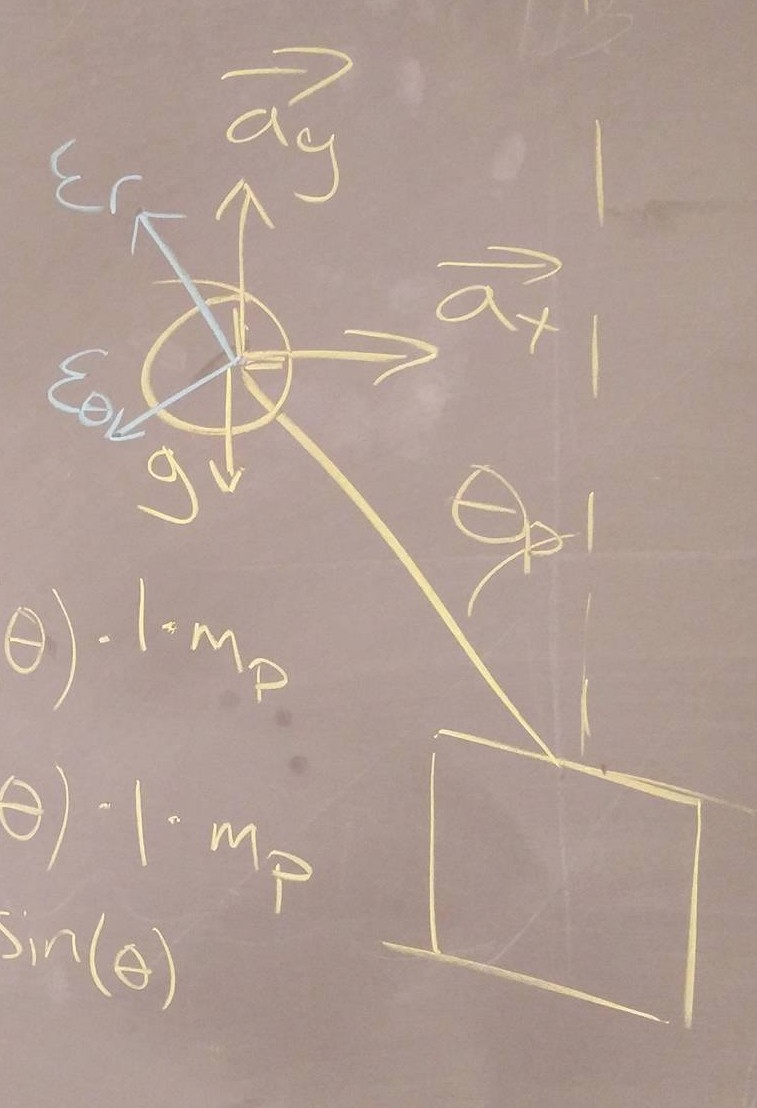 a⃗y
εr
a⃗x
εθ
g
θp
θ) · l · mp
θ) · l · mp
sin(θ)